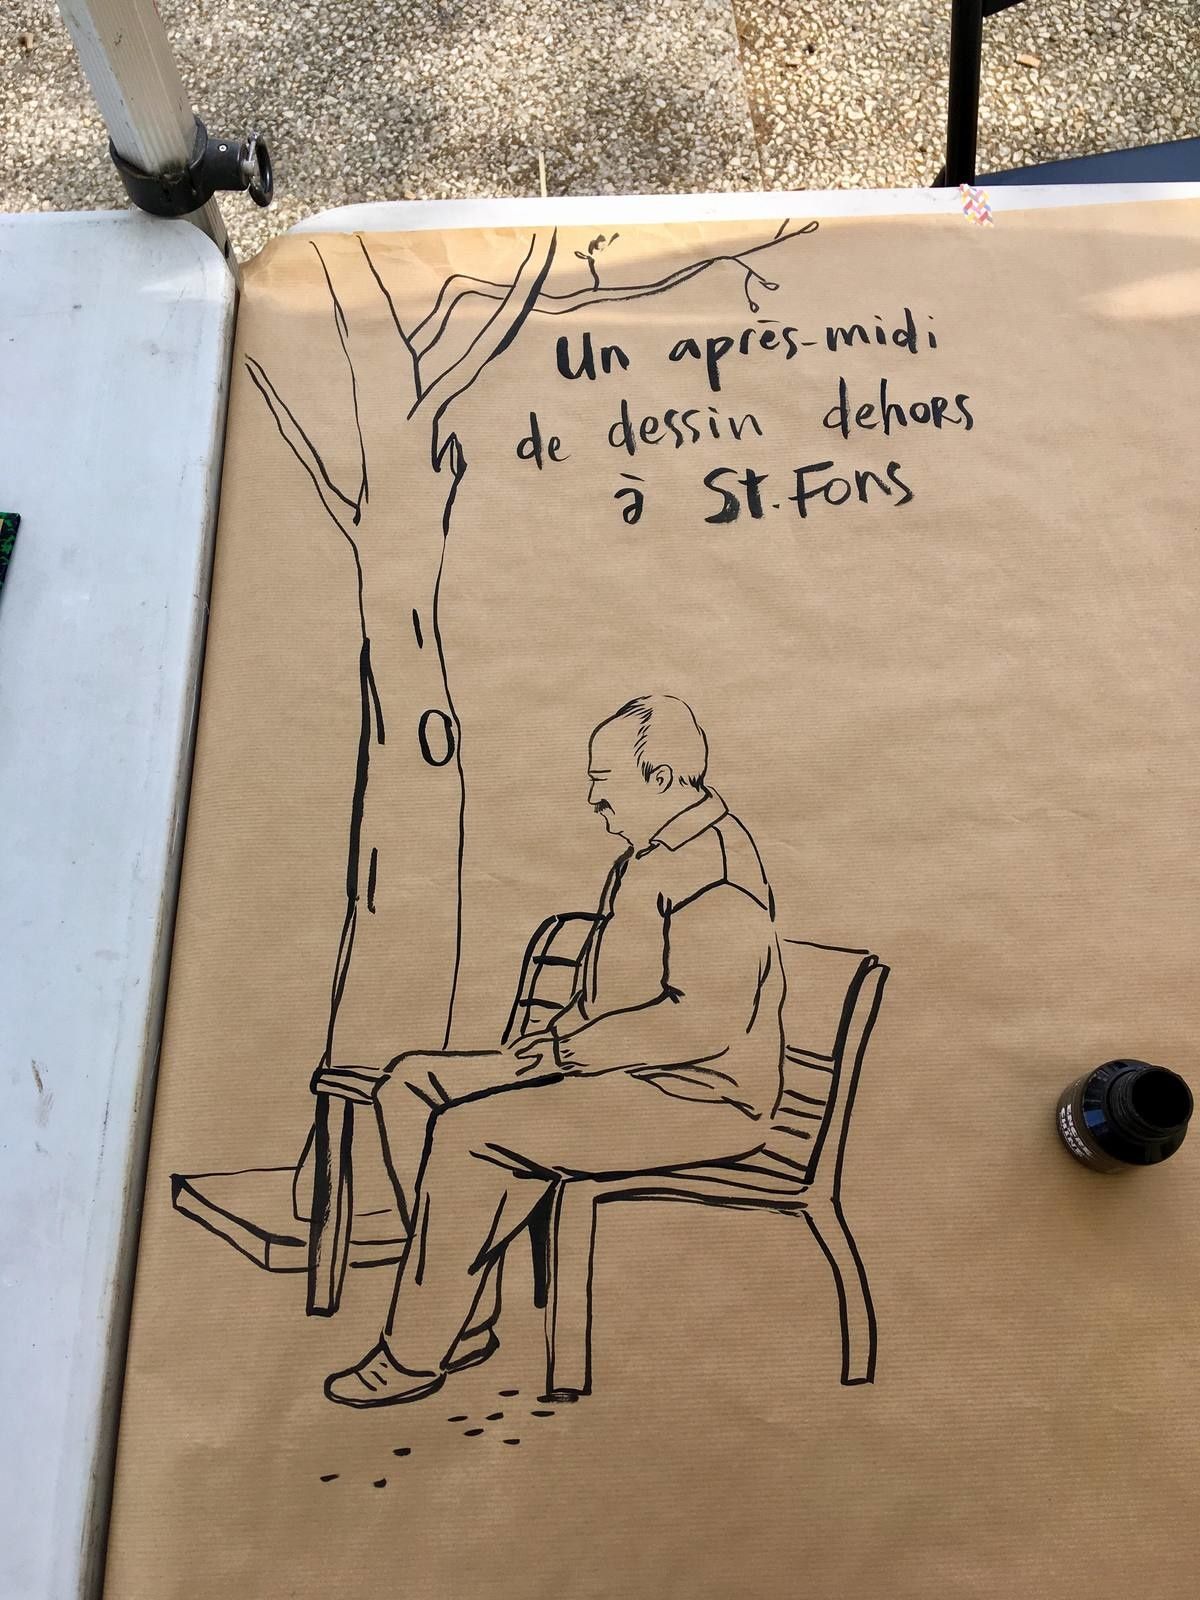 Un après-midi
de dessin dehors
à St. Fons
ENCRE
CHINE